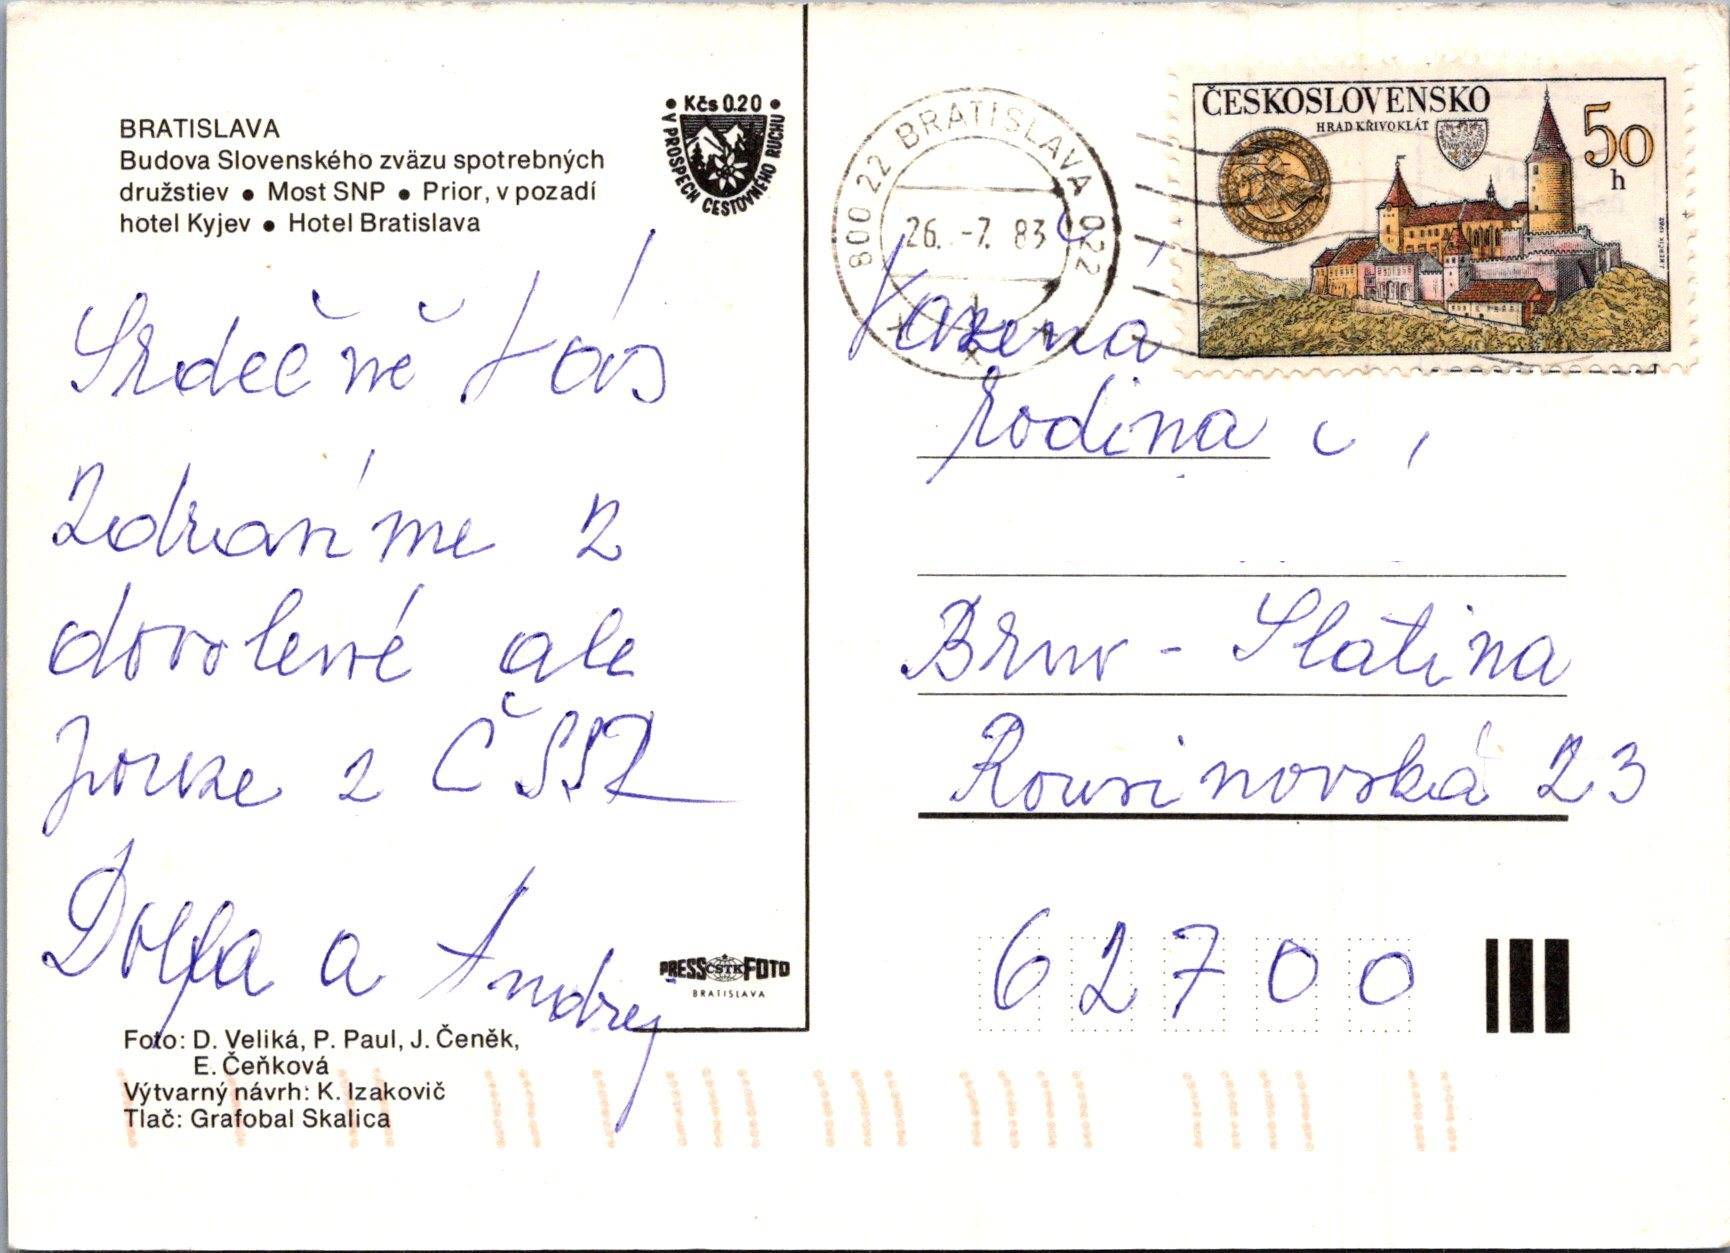 BRATISLAVA
Budova Slovenského zväzu spotrebných
družstiev ● Most SNP ● Prior, v pozadí
hotel Kyjev ● Hotel Bratislava
• Kčs 0.20 •
V PROSPECH CESTOVNÉHO RUCHU
Srdečně Vás
Zdravíme z
dovolené ale
pouze z ČSSR
Dolfa a Andrej
PRESS ČSTK FOTO
BRATISLAVA
Foto: D. Veliká, P. Paul, J. Čeněk,
E. Čeňková
Výtvarný návrh: K. Izakovič
Tlač: Grafobal Skalica
800 22 BRATISLAVA 022
26. -7. 83
ČESKOSLOVENSKO
HRAD KŘIVOKLÁT
50
h
J. HERČÍK 1982
Vážená
rodina
Brno - Slatina
Rousínovská 23
62700